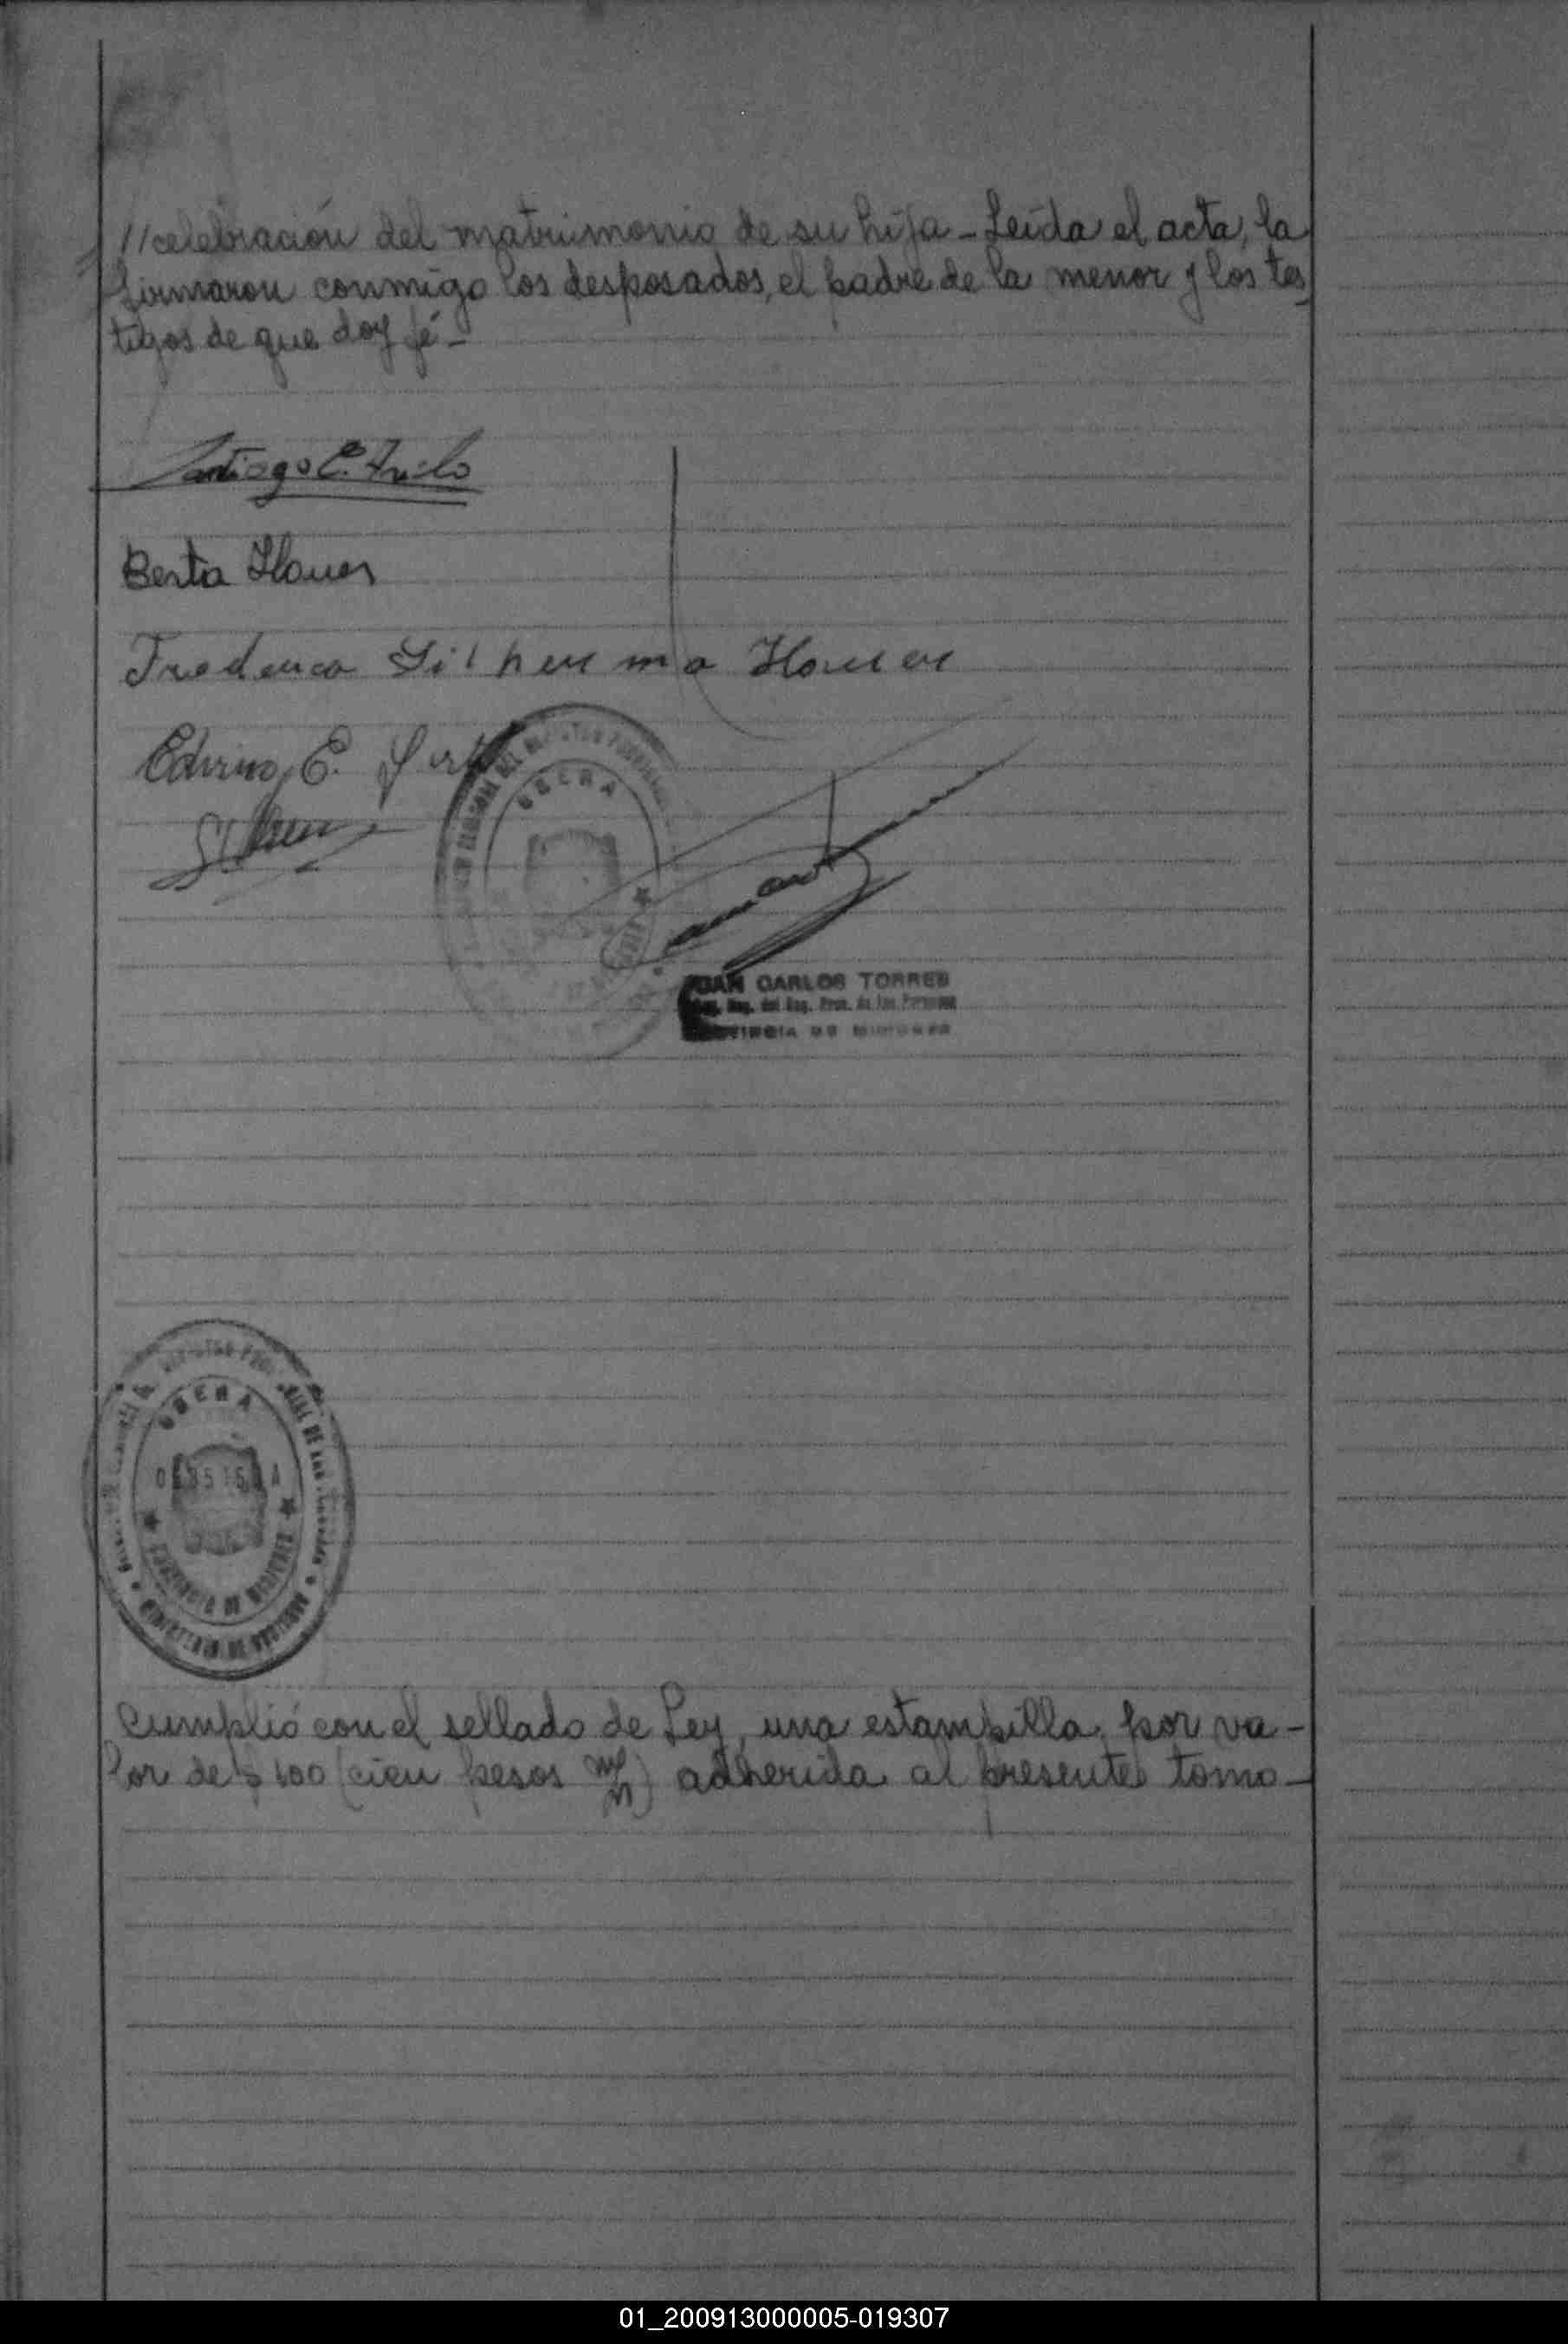 //celebración del matrimonio de su hija - Leída el acta, la
firmaron conmigo los desposados, el padre de la menor y los tes
tigos de que doy fé -
Santiago E.
Berta
Edvino E.
OBERA
JUAN CARLOS TORRES
del Reg. Prov. de las Personas
PROVINCIA DE MISIONES
OBERA
PROVINCIA DE MISIONES
Cumplió con el sellado de Ley, una estampilla por va-
lor de $ 100 (cien pesos m/n) adherida al presente tomo -
01_200913000005-019307